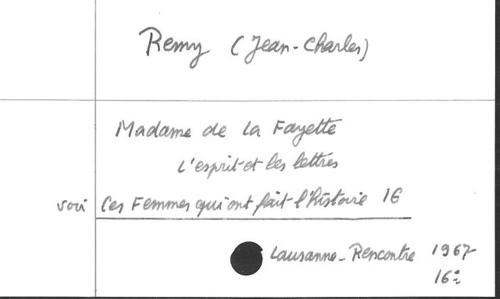 Remy (Jean-Charles)
Madame de La Fayette
L'esprit et les lettres
voir Ces Femmes qui ont fait l'histoire 16
Lausanne-Rencontre 1967
16°